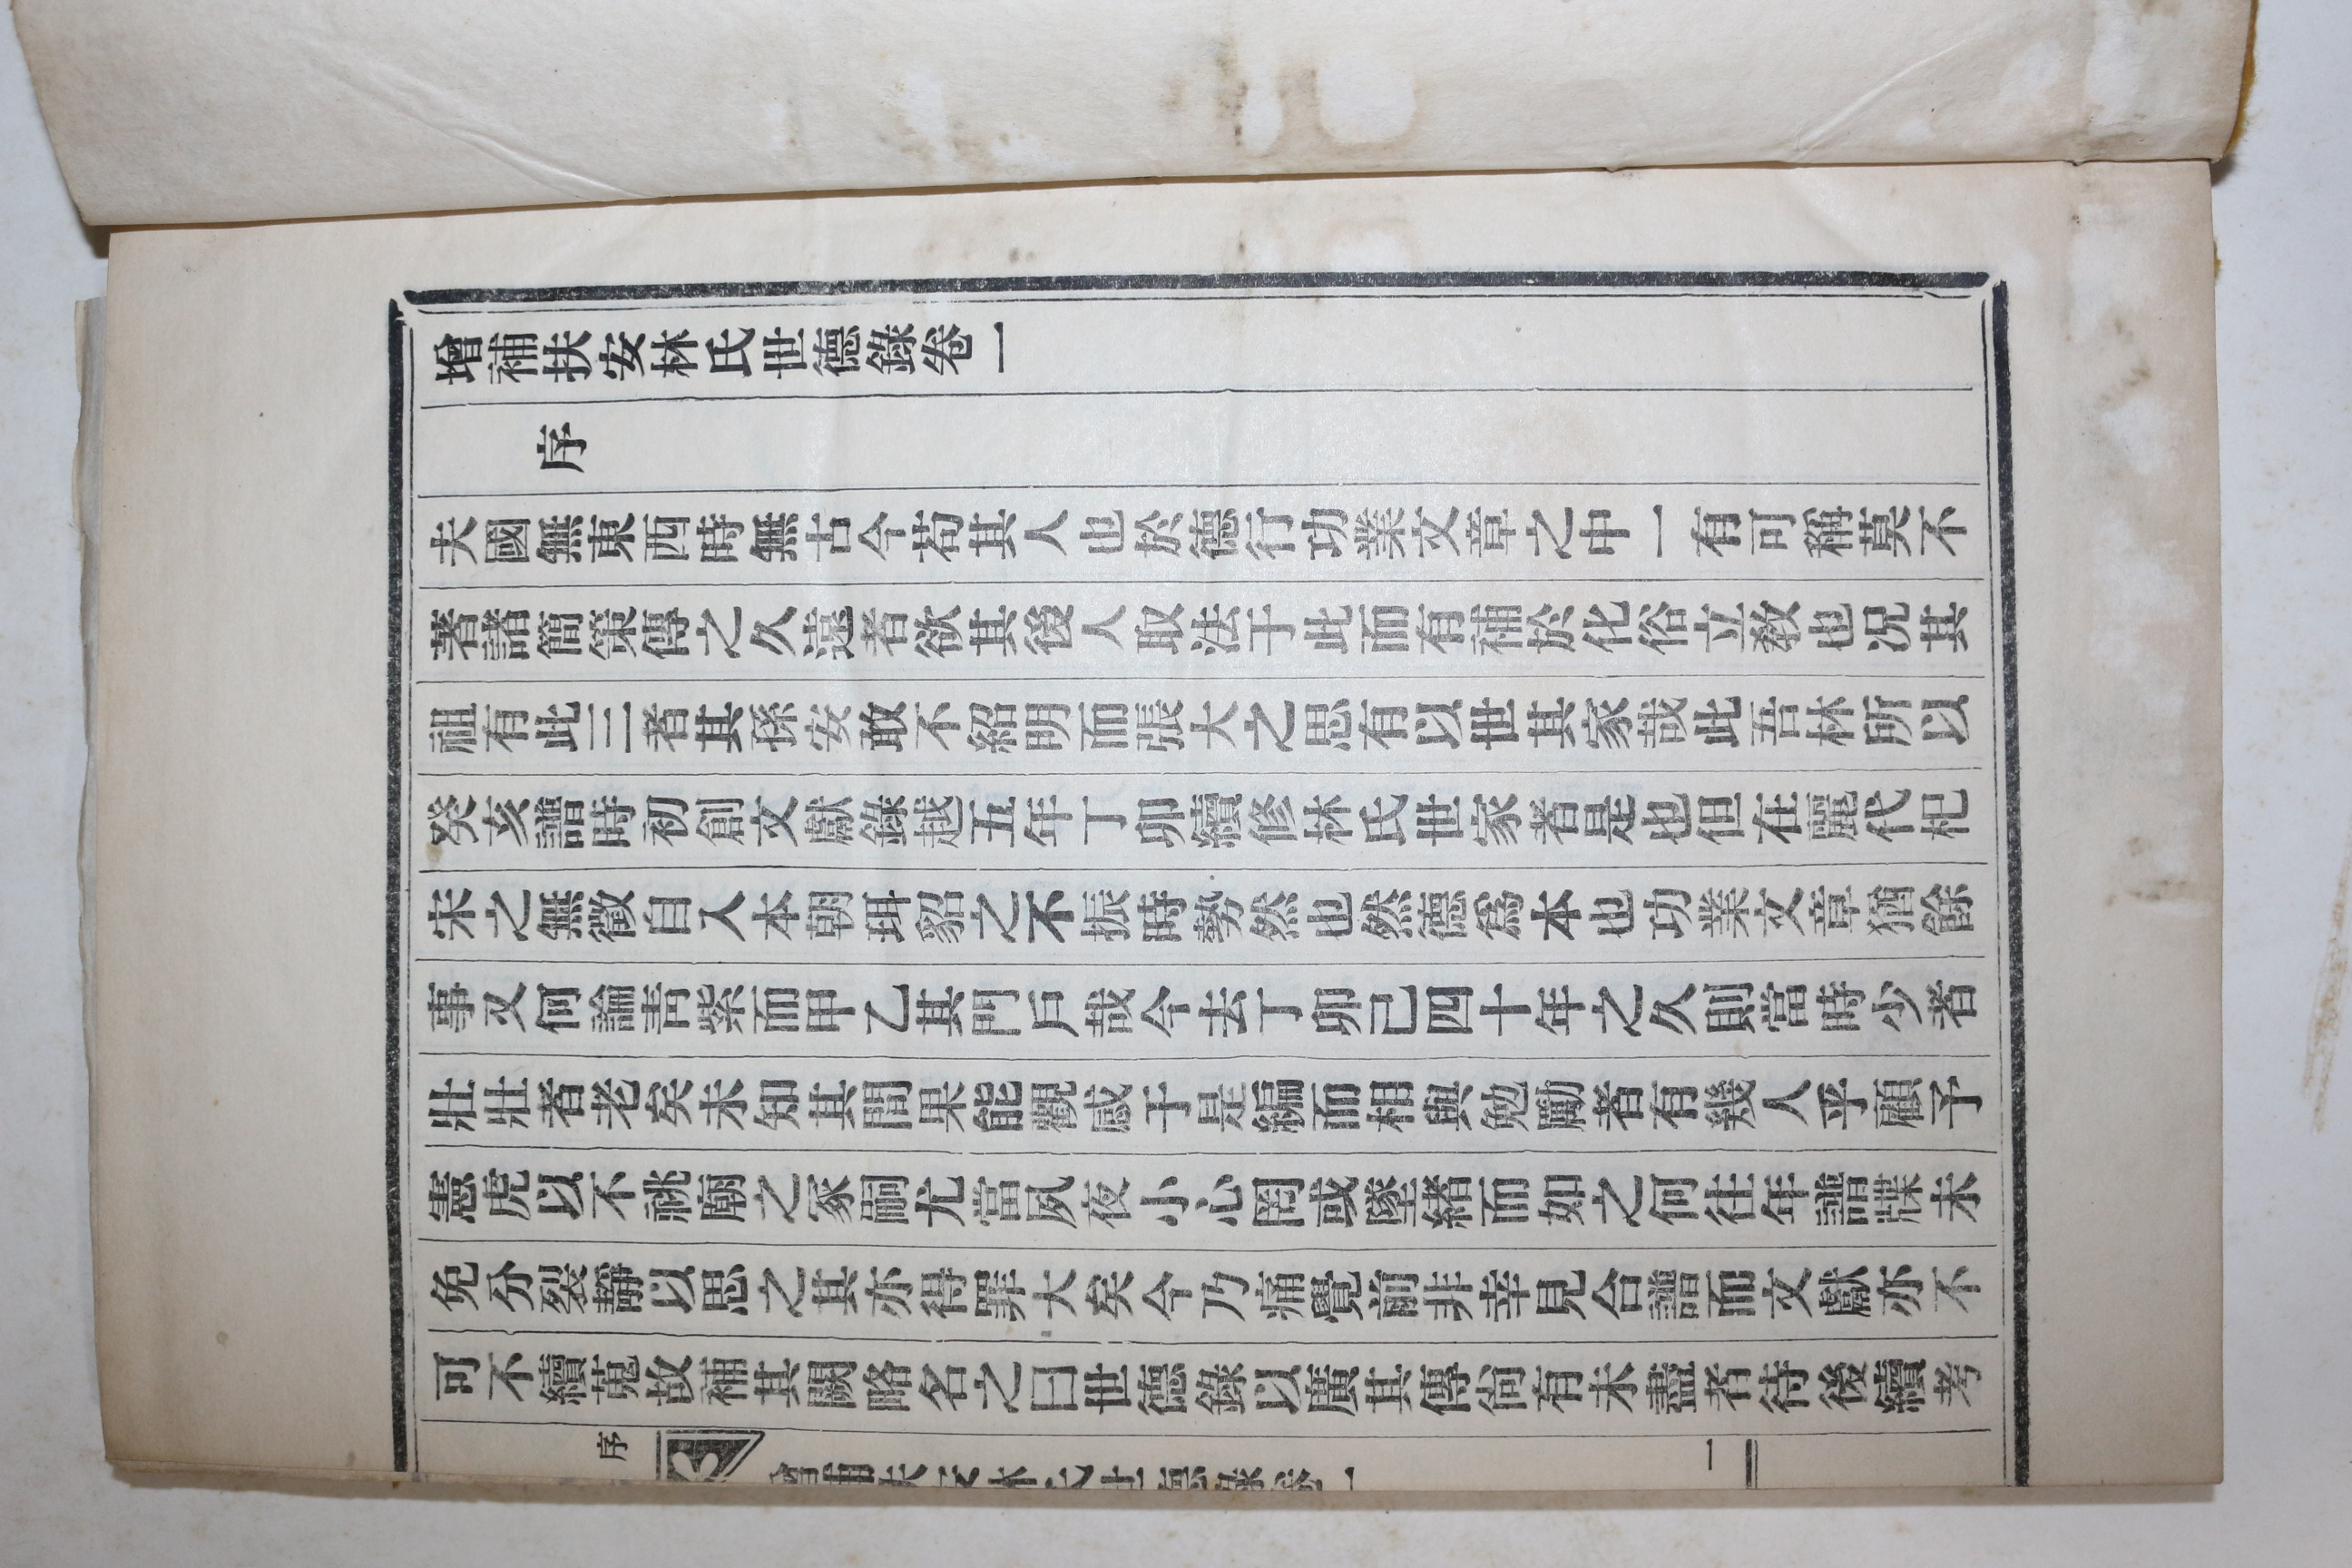 增補扶安林氏世德錄卷一
序
夫國無東西時無古今苟其人也於德行功業文章之中一有可稱莫不
著諸簡策傳之久遠者欲其後人取法于此而有補於化俗立敎也况其
祖有此三者其孫安敢不紹明而張大之思有以世其家哉此吾林所以
癸亥譜時初創文獻錄越五年丁卯續修林氏世家者是也但在麗代杞
宋之無徵自入本朝珥貂之不振時勢然也然德爲本也功業文章猶餘
事又何論靑紫而甲乙其門戶哉今去丁卯己四十年之久則當時少者
壯壯者老矣未知其間果能觀感于是編而相與勉勵者有幾人乎顧予
憲虎以不祧廟之冢嗣尤當夙夜小心罔或墜緖而如之何往年譜牒未
免分裂靜以思之其亦得罪大矣今乃痛覺前非幸見合譜而文獻亦不
可不續蒐故補其闕略名之曰世德錄以廣其傳尙有未盡者待後續考
序 增補扶安林氏世德錄卷一 二